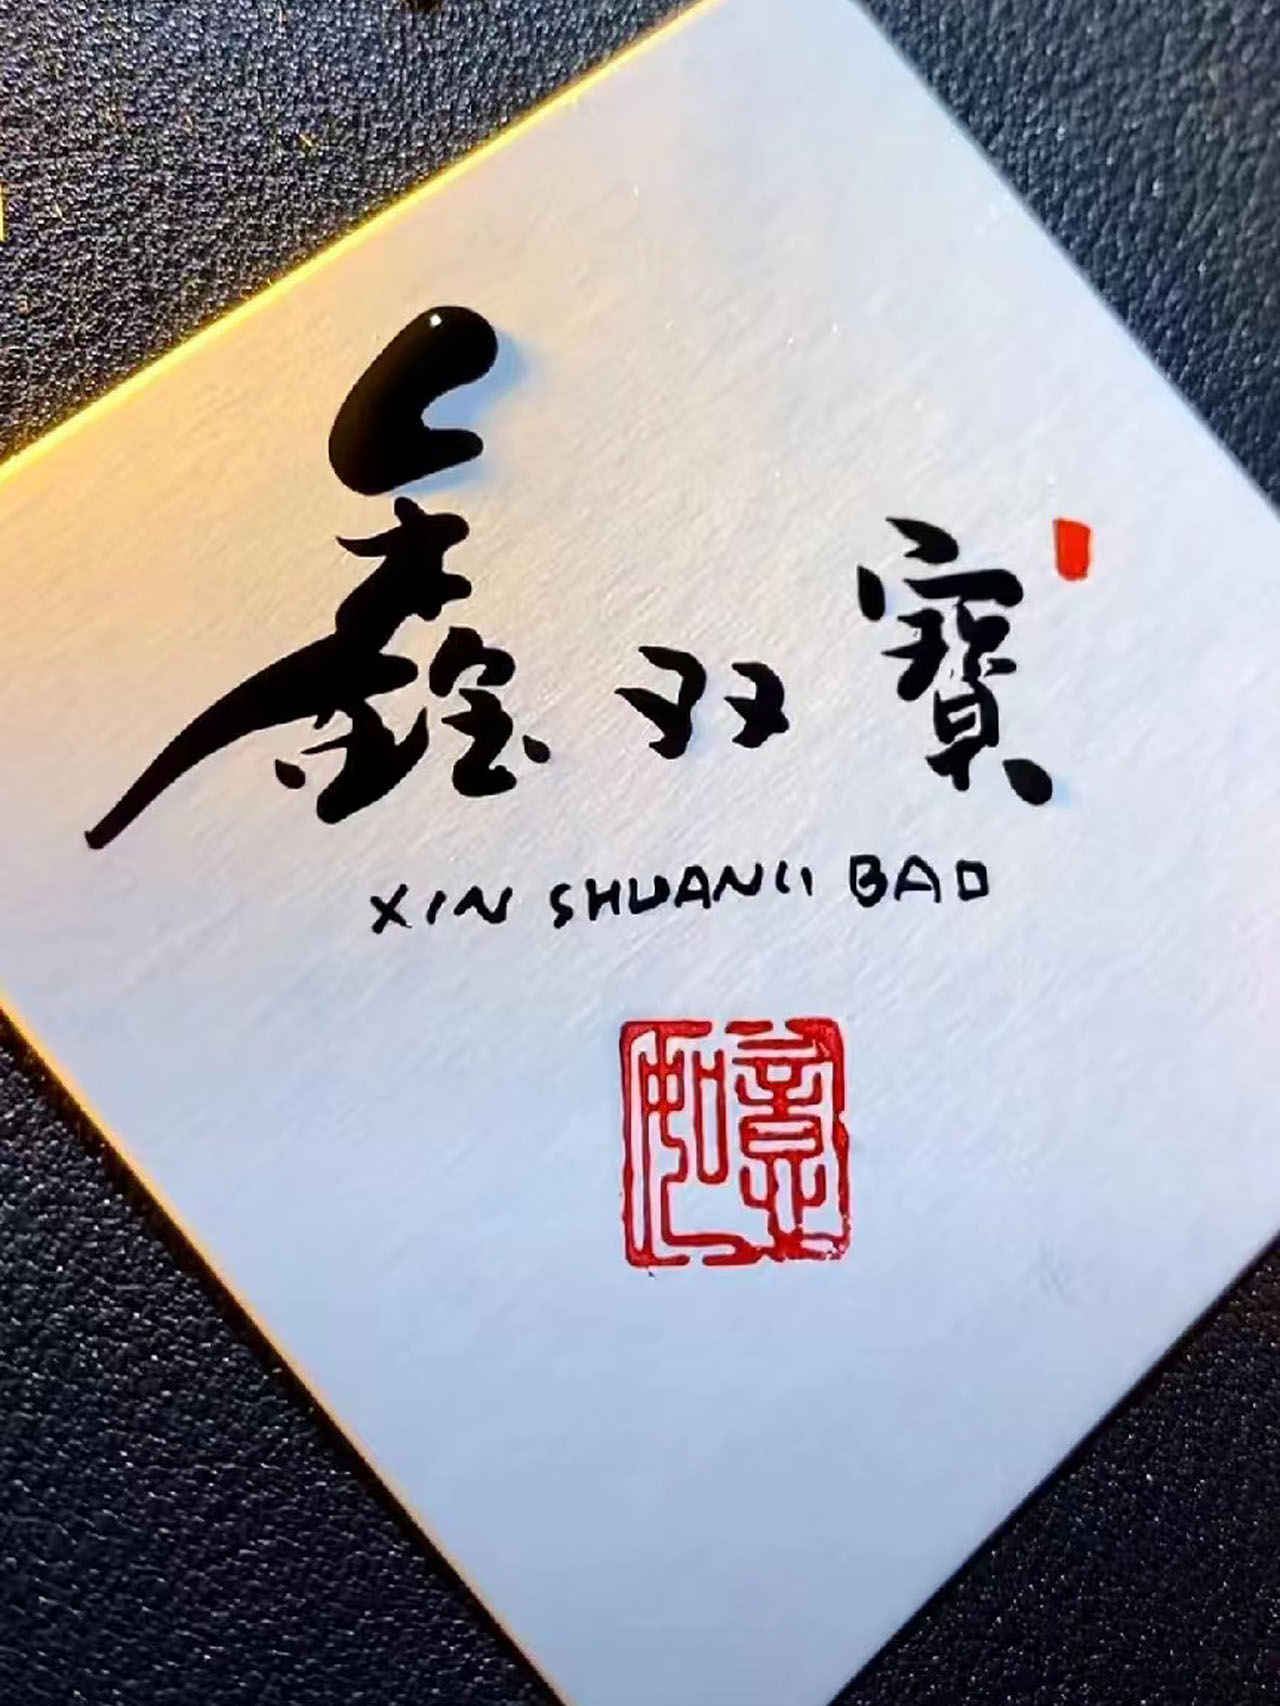 鑫双寶
XIN SHUANG BAO
如意